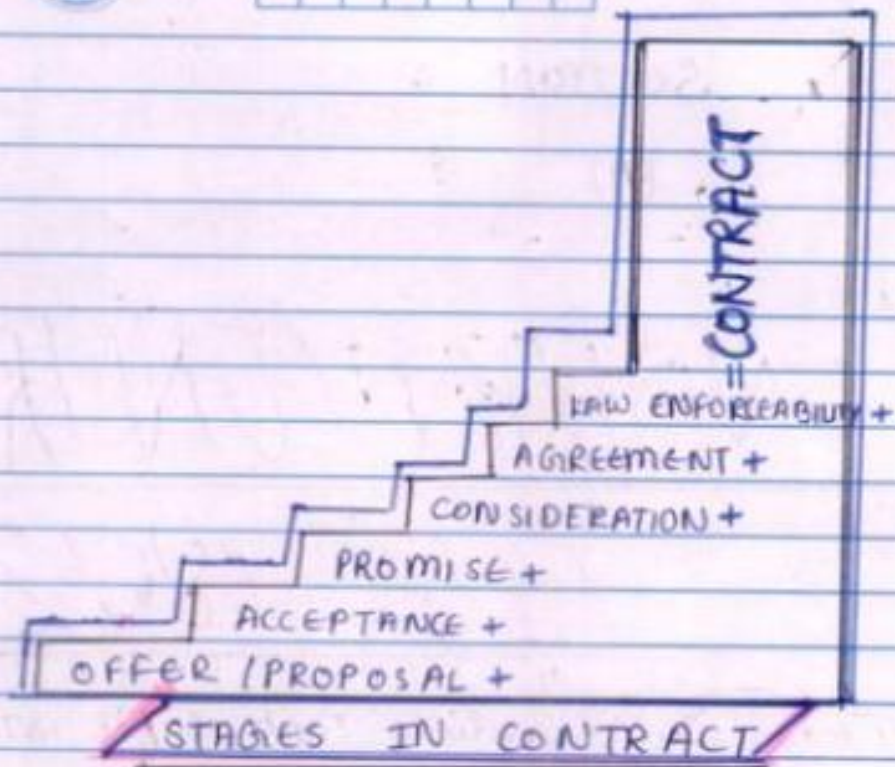 =CONTRACT
LAW ENFORCEABILITY +
AGREEMENT +
CONSIDERATION +
PROMISE +
ACCEPTANCE +
OFFER / PROPOSAL +
STAGES IN CONTRACT